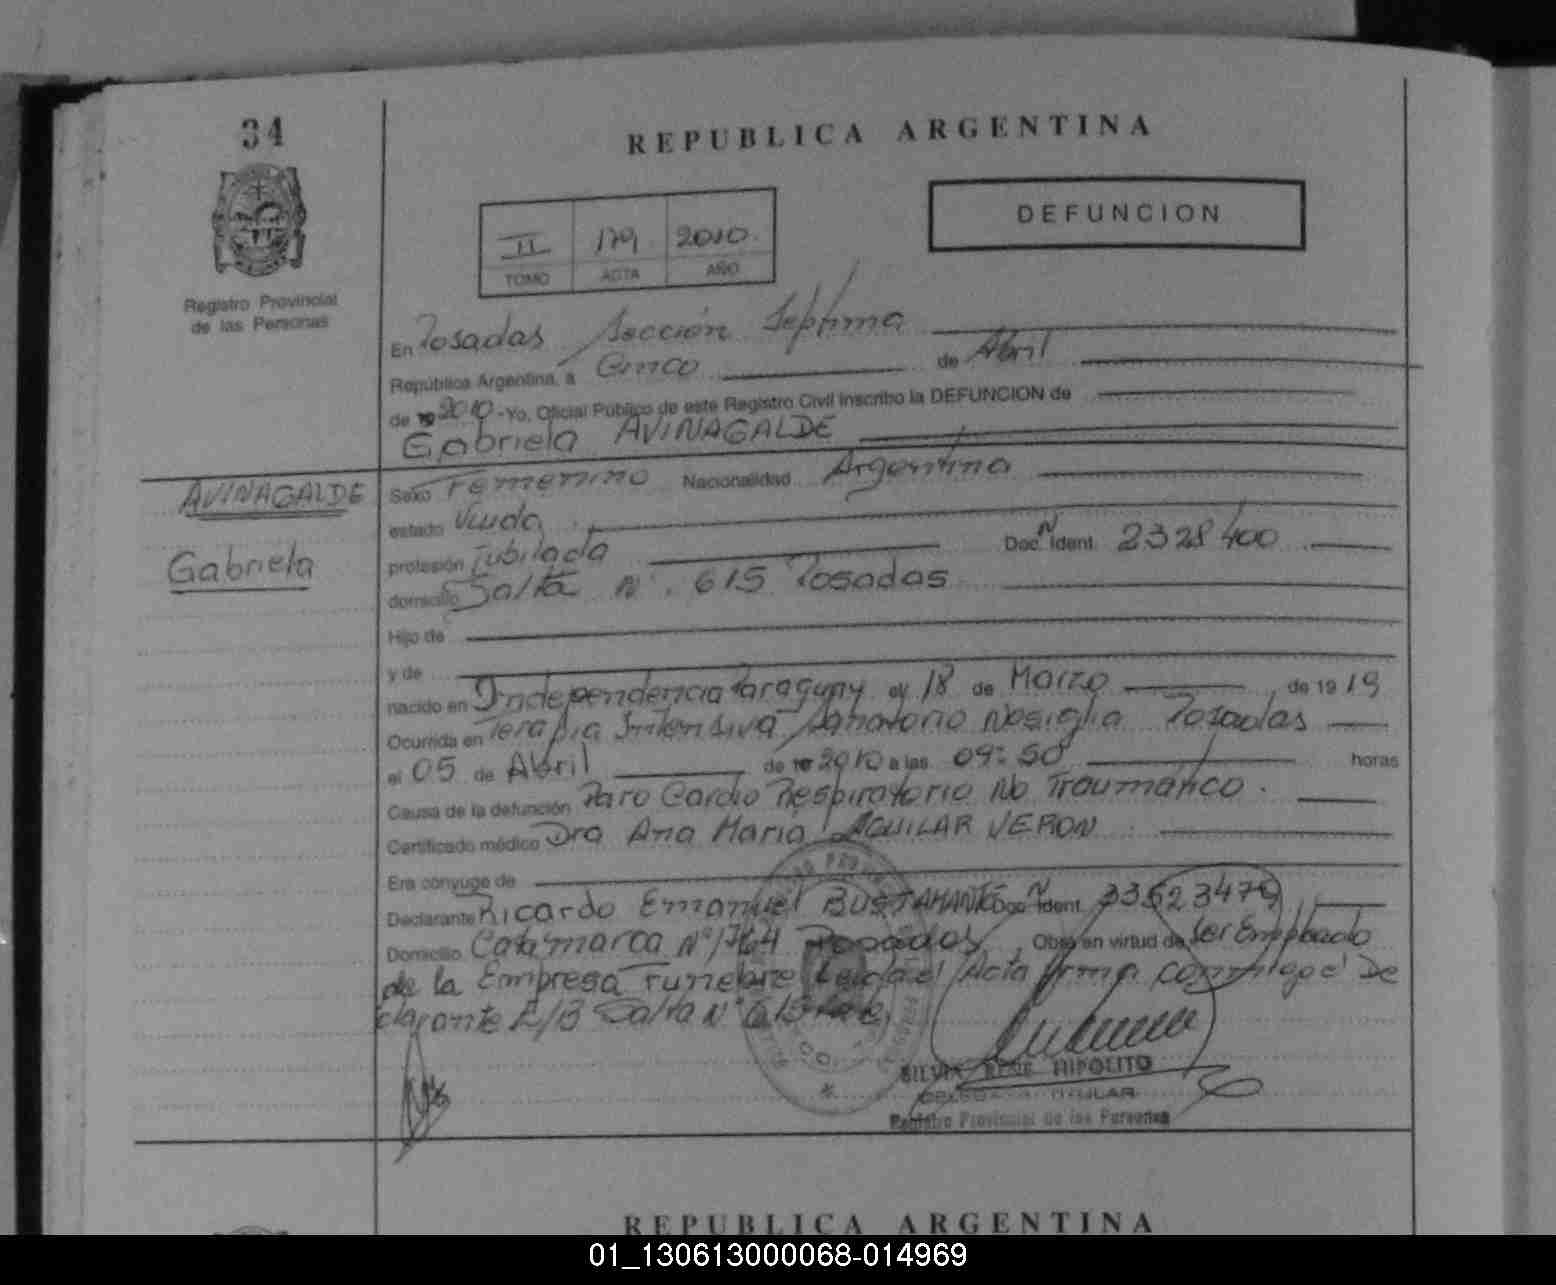 34
REPUBLICA ARGENTINA
Registro Provincial
de las Personas
II 179 2010.
TOMO ACTA AÑO
DEFUNCION
En Posadas Sección Septima
República Argentina, a Cinco de Abril
de 2010 - Yo, Oficial Público de este Registro Civil inscribo la DEFUNCION de
Gabriela AVINAGALDE
AVINAGALDE
Gabriela
Sexo Femenino Nacionalidad Argentina
estado Viuda
profesión Jubilada Doc. N Ident. 2328400
domicilio Salta N. 615 Posadas
Hijo de
y de
nacido en Independencia Paraguay el 18 de Marzo de 1919
Ocurrida en Terapia Intensiva Sanatorio Nosiglia Posadas
el 05 de Abril de 2010 a las 09:50 horas
Causa de la defunción Paro Cardio Respiratorio No Traumático.
Certificado médico Dra Ana Maria AGUILAR VERON
Era cónyuge de
Declarante Ricardo Emanuel BUSTAMANTE Doc. N Ident. 33523479
Domicilio Catamarca Nº 1764 Posadas Obra en virtud de ser Empleado
de la Empresa Funebre Leida el Acta firma conmigo el De
clarante E/B Salta Nº 615
SILVIA RENE HIPOLITO
DELEGADA TITULAR
Registro Provincial de las Personas
REPUBLICA ARGENTINA
01_130613000068-014969